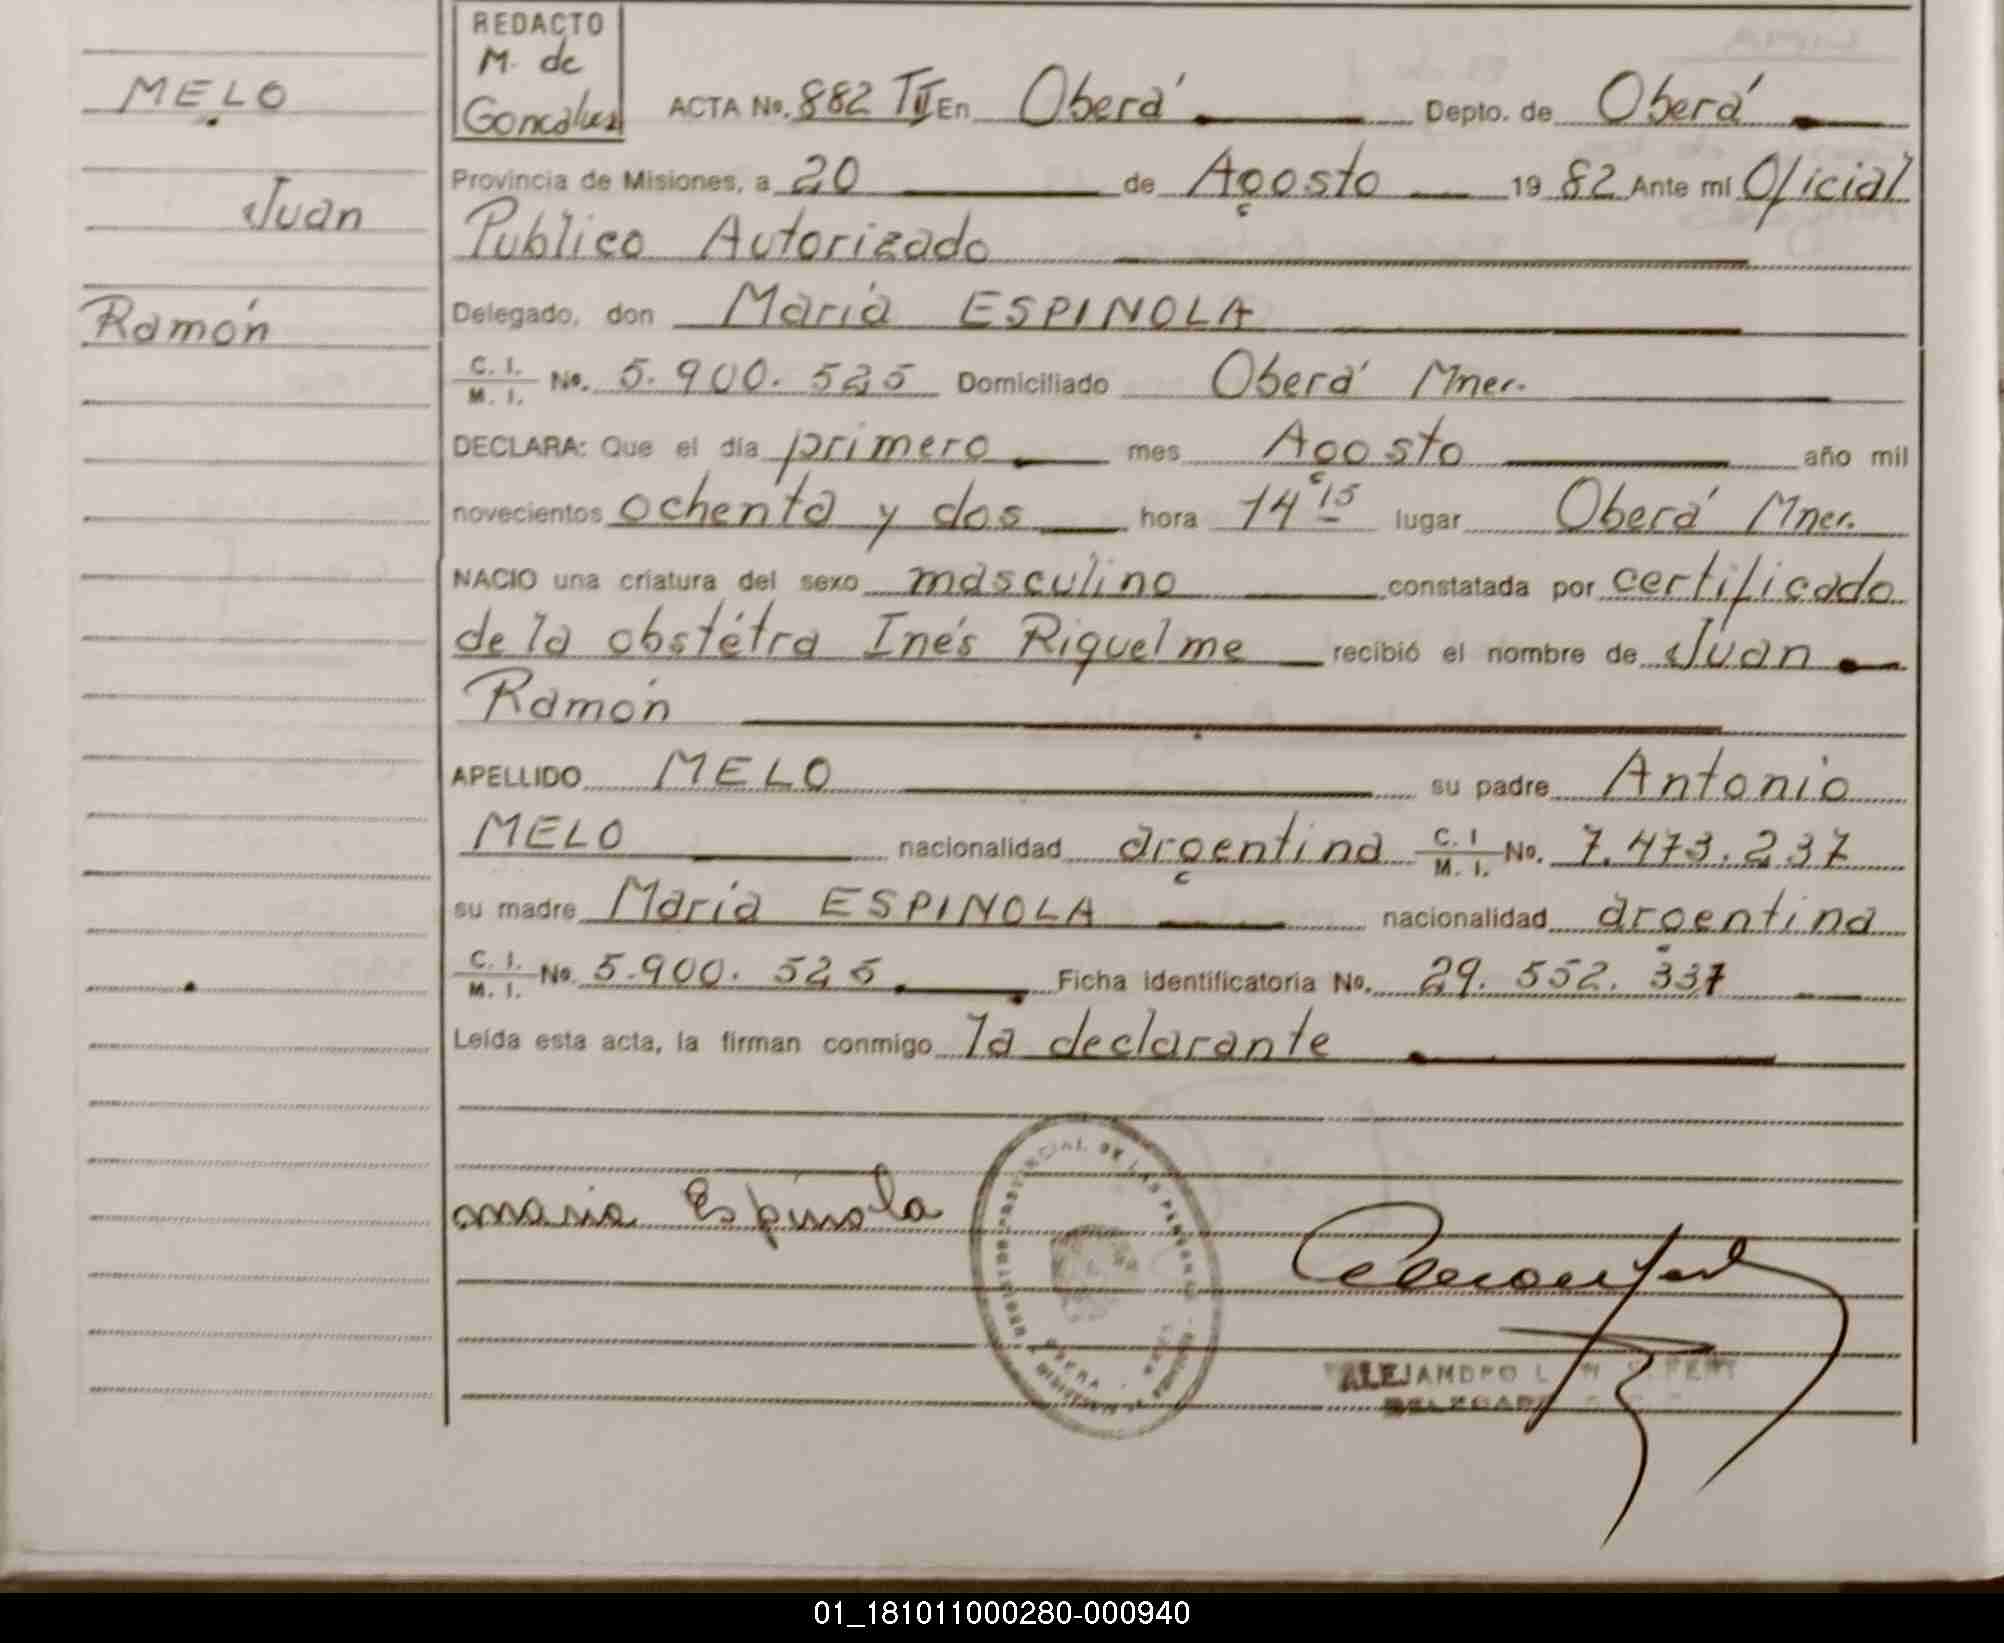 REDACTO
M. de
Goncalves
MELO
Juan
Ramón
ACTA No. 882 TII En Oberá Depto. de Oberá
Provincia de Misiones, a 20 de Agosto 19 82 Ante mi Oficial
Publico Autorizado
Delegado, don Maria ESPINOLA
C. I. / M. I. No. 5.900.525 Domiciliado Oberá Mnes.
DECLARA: Que el dia primero mes Agosto año mil
novecientos ochenta y dos hora 14 15 lugar Oberá Mnes.
NACIO una criatura del sexo masculino constatada por certificado
de la obstétra Inés Riquelme recibió el nombre de Juan
Ramón
APELLIDO MELO su padre Antonio
MELO nacionalidad argentina C. I / M. I. No. 7.473.237
su madre Maria ESPINOLA nacionalidad argentina
C. I. / M. I. No. 5.900.525 Ficha identificatoria No. 29.552.337
Leída esta acta, la firman conmigo la declarante
maria Espinola
PROVINCIAL DE LAS PERSONAS
OBERA
ALEJANDRO
DELEGADO
01_181011000280-000940